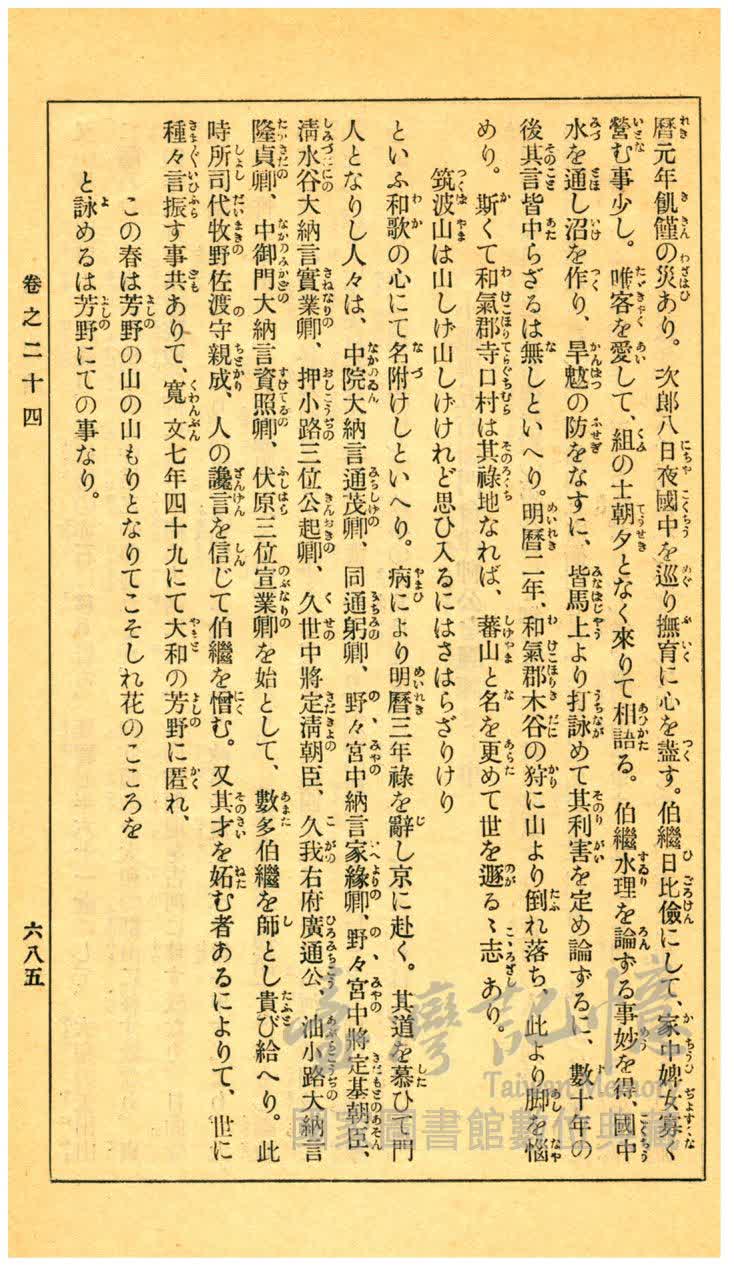 曆元年飢饉の災あり。次郎八日夜國中を巡り撫育に心を盡す。伯繼日比儉にして、家中婢女寡く
營む事少し。唯客を愛して、組の士朝夕となく來りて相語る。伯繼水理を論ずる事妙を得、國中
水を通し沼を作り、旱魃の防をなすに、皆馬上より打詠めて其利害を定め論ずるに、數十年の
後其言皆中らざるは無しといへり。明曆二年、和氣郡木谷の狩に山より倒れ落ち、此より脚を惱
めり。斯くて和氣郡寺口村は其祿地なれば、蕃山と名を更めて世を遯るゝ志あり。
筑波山は山しげ山しげけれど思ひ入るにはさはらざりけり
といふ和歌の心にて名附けしといへり。病により明曆三年祿を辭し京に赴く。其道を慕ひて門
人となりし人々は、中院大納言通茂卿、同通躬卿、野々宮中納言家緣卿、野々宮中將定基朝臣、
淸水谷大納言實業卿、押小路三位公起卿、久世中將定淸朝臣、久我右府廣通公、油小路大納言
隆貞卿、中御門大納言資照卿、伏原三位宣業卿を始として、數多伯繼を師とし貴び給へり。此
時所司代牧野佐渡守親成、人の讒言を信じて伯繼を憎む。又其才を妬む者あるによりて、世に
種々言振す事共ありて、寬文七年四十九にて大和の芳野に匿れ、
この春は芳野の山の山もりとなりてこそしれ花のこころを
と詠めるは芳野にての事なり。
卷之二十四
六八五
臺灣記憶
Taiwan Memory
國家圖書館數位典藏